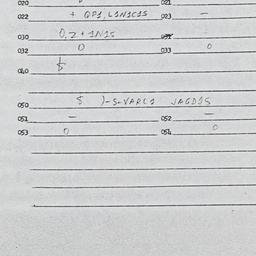 020 021
022 + QP1, L1N1C1S 023 -
030 0,2+1N1S 031
032 0 033 0
040 5
050 5 )-S-VARC1 JAGD1S
051 - 052 -
053 0 054 0